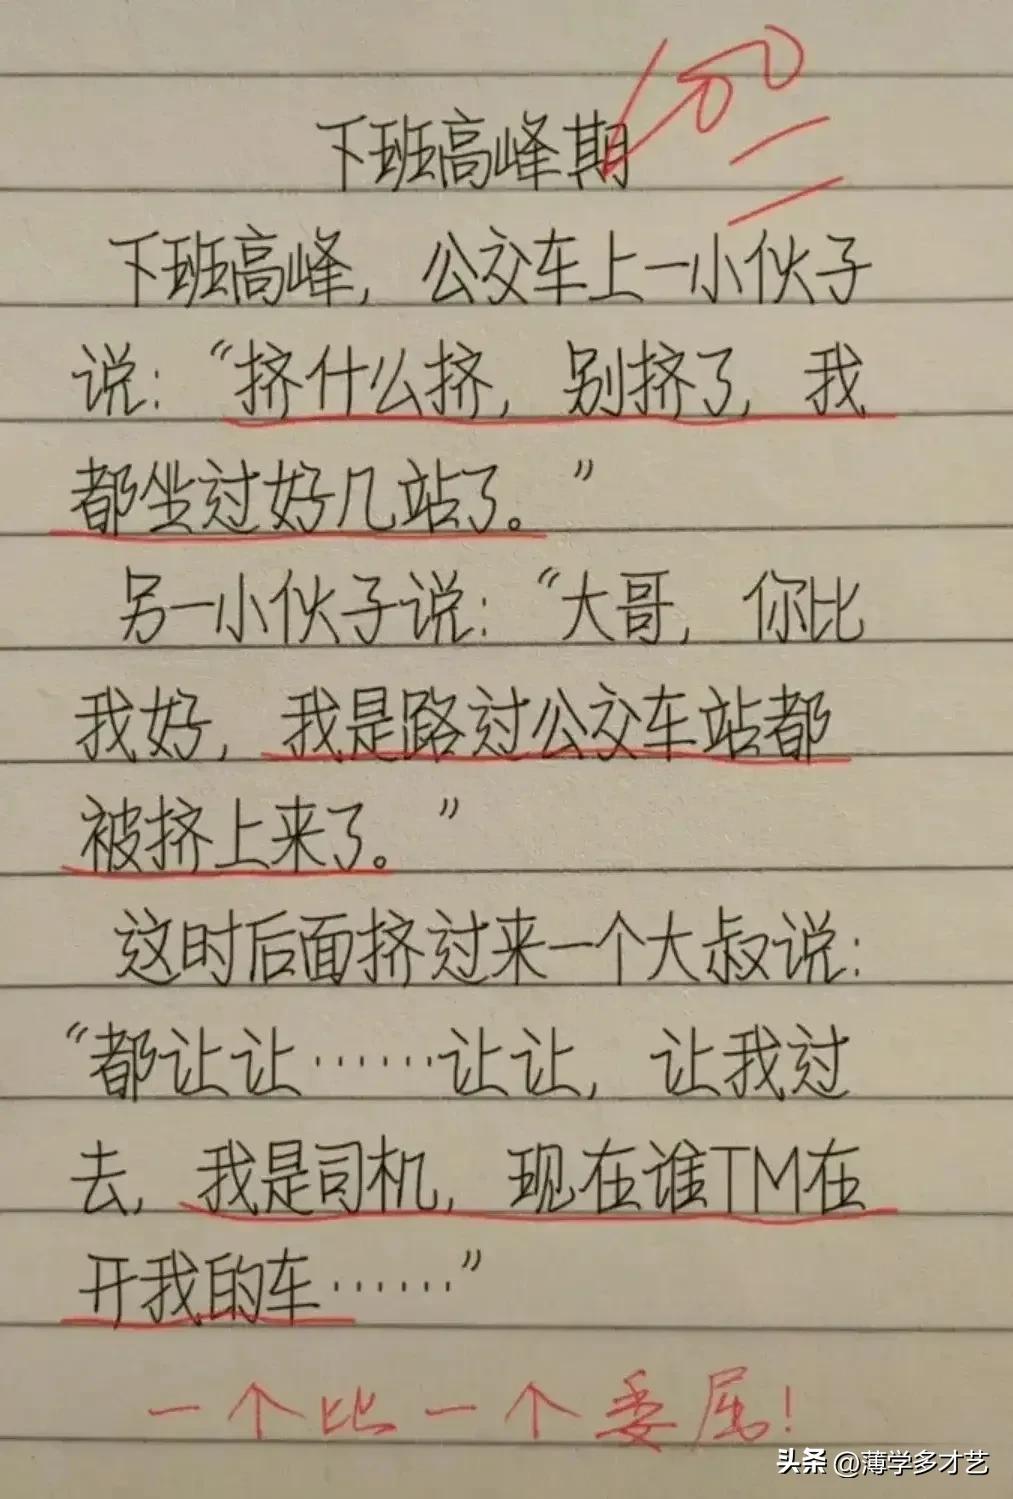 100
下班高峰期
下班高峰，公交车上一小伙子
说：“挤什么挤，别挤了，我
都坐过好几站了。”
另一小伙子说：“大哥，你比
我好，我是路过公交车站都
被挤上来了。”
这时后面挤过来一个大叔说：
“都让让……让让，让我过
去，我是司机，现在谁TM在
开我的车……”
一个比一个委屈！
头条 @薄学多才艺